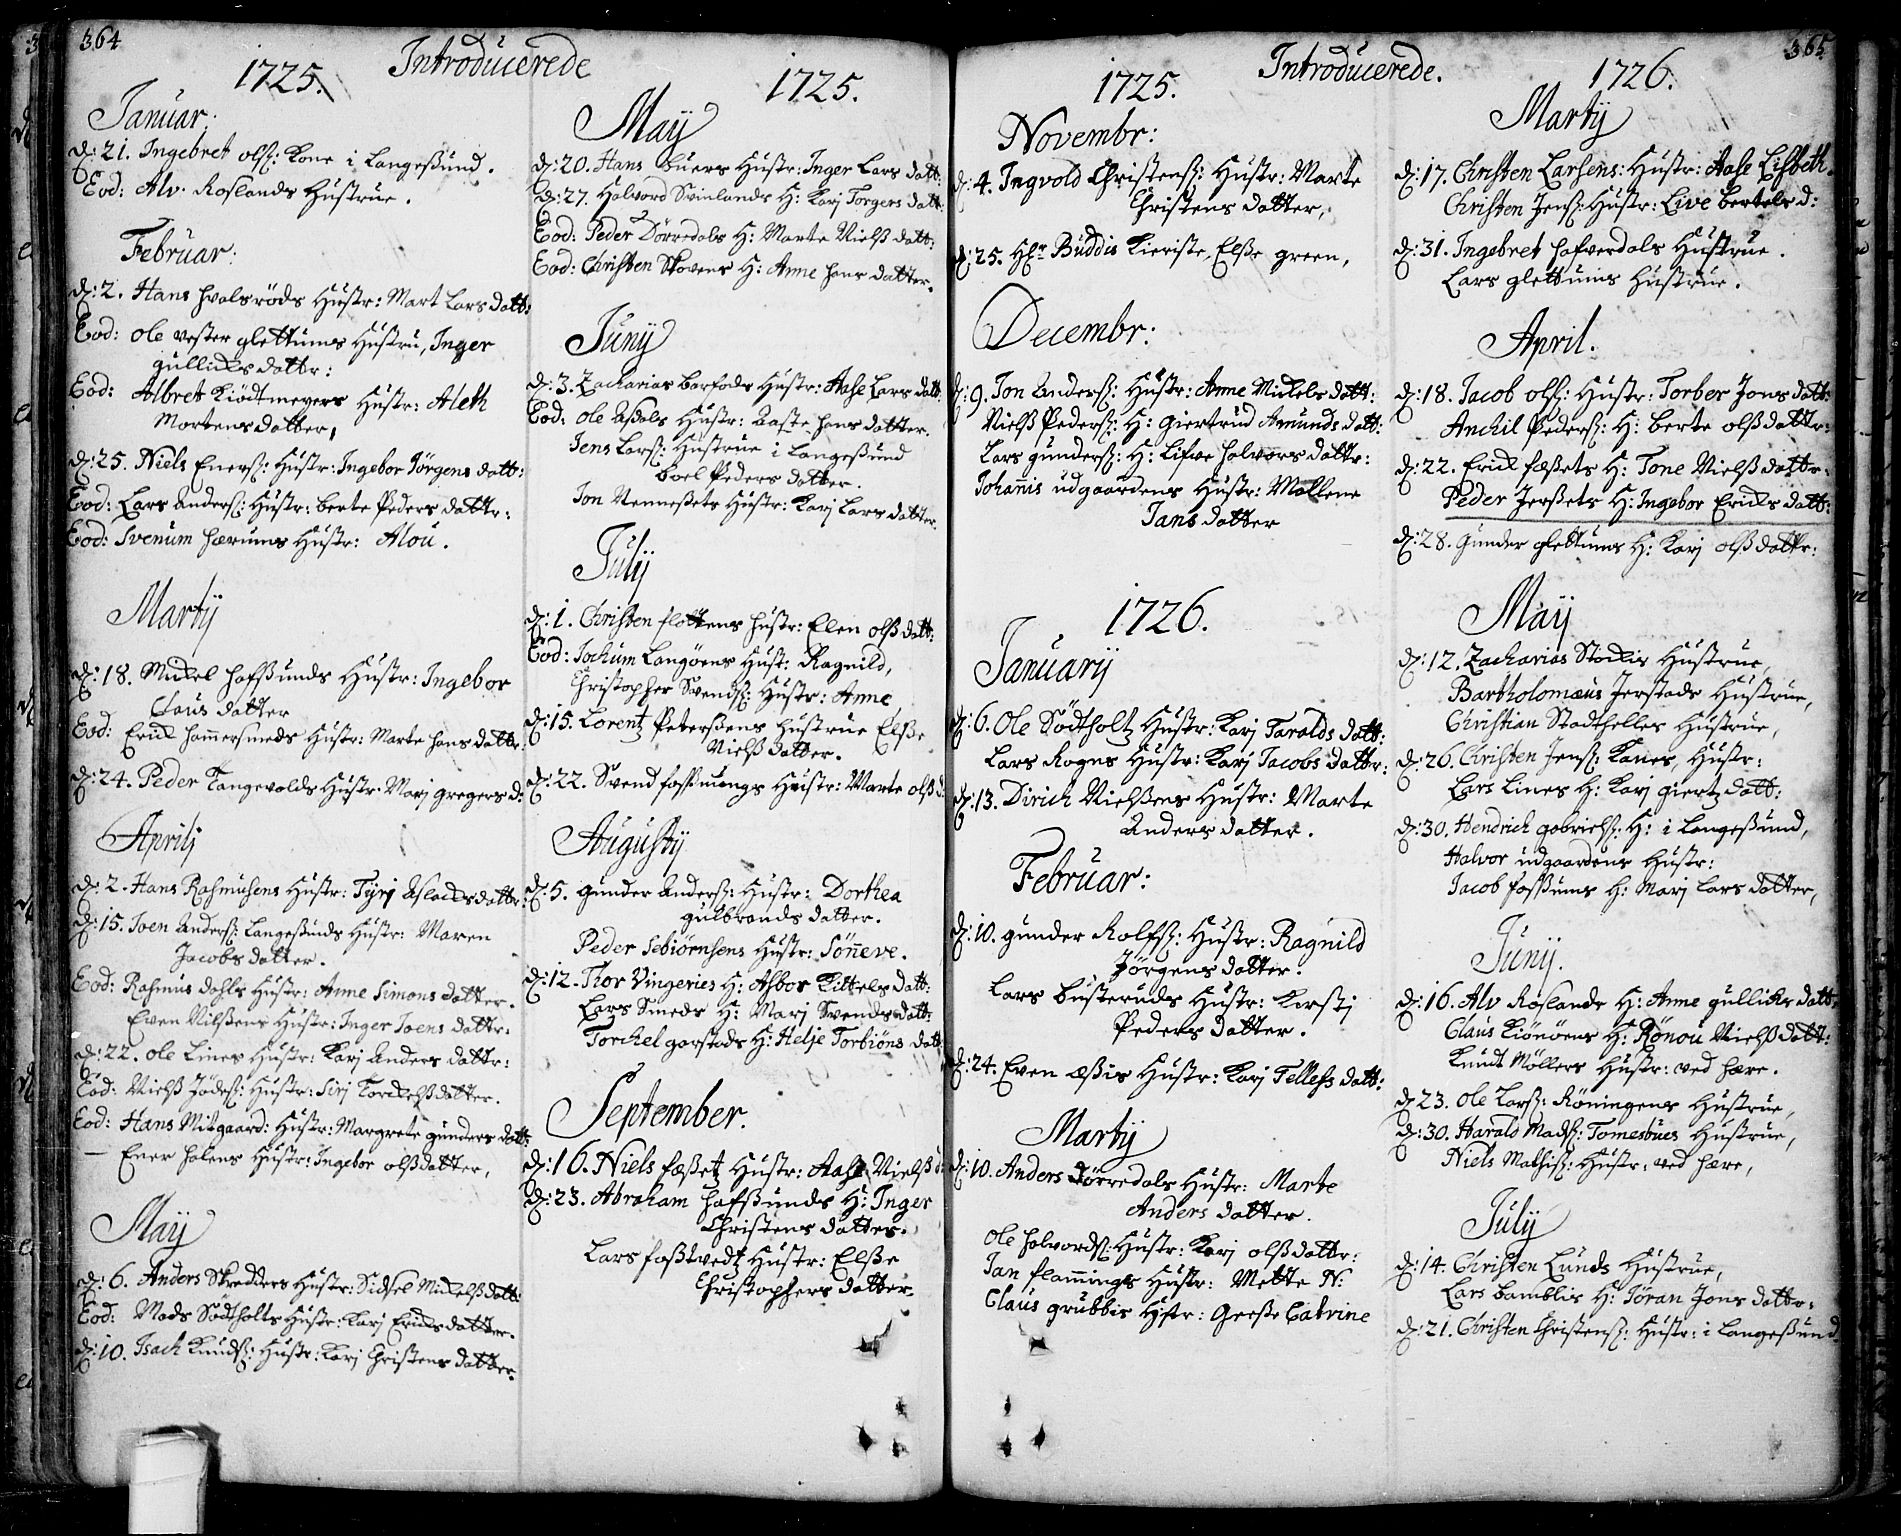 364
Introducerede
1725.
Januar:
d: 21. Ingebret Olss: Kone i Langessund.
Eod: Alv. Roslands Hustrue.
Februar:
d: 2. Hans Hvalsröds Hustr: Mart Lars datt:
Eod: Ole vester glettums Hustru, Inger
gullichs dattr:
Eod: Albret Kiödtmeyers Hustr: Aleth
Mortens datter,
d: 25. Niels Eners: Hustr: Ingebor Jörgens datt:
Eod: Lars Anders: Hustr: berte Peders dattr:
Eod: Svenum Hærums Hustr: Alou.
Martij
d: 18. Mickel Hafssunds Hustr: Ingebor
Claus datter
Eod: Erick Hammersmeds Hustr: Marte Hans dattr:
d: 24. Peder Tangevolds Hustr: Marj gregers d:
Aprilj
d: 2. Hans Rasmusens Hustr: Tyrj Aslacks dattr:
d: 15. Joen Anders: Langessunds Hustr: Maren
Jacobs datter.
Eod: Rasmus dahls Hustr: Anne Simons datter.
Even Nilssens Hustr: Inger Joens dattr:
d: 22. Ole Lines Hustr: Karj Anders dattr:
Eod: Nielss Jödes: Hustr: Sirj Torckelss datter.
Eod: Hans Mitgaard: Hustr: Margrete gunders datt:
— Ener Holens Hustr: Ingebor Olss datter,
Maij
d: 6. Anders Skredders Hustr: Sidsel Mickelss datt:
Eod: Mads Södtholts Hustr: Karj Ericks datter.
d: 10. Isach Knuds: Hustr: Karj Christens datter.
1725.
Maij
d: 20. Hans buers Hustr: Inger Lars datt:
d: 27. Halvord Svinlands H: Karj Torgers datt:
Eod: Peder Dörredals H: Marte Nielss datt:
Eod: Christen Skovens H: Anne Hans datter.
Junij
d: 3. Zacharias barfods Hustr: Aase Lars datt.
Eod: Ole Assdals Hustr: Aaste Hans datter.
Jens Lars: Hustrue i Langessund
boel Peders datter.
Jon Vennessets Hustr: Karj Lars datter.
Julij
d: 1. Christen flottens Hustr: Elen Olss datt:
Eod: Jochum Langöens Hust: Ragnild,
Christopher Svends: Hustr: Anne
d: 15. Lorentz Peterssens Hustrue Elsse
Nielss datter.
d: 22. Svend fossmungs Hustr: Marte Olss d:
Augustij
d: 5. gunder Anders: Hustr: Dorthea
gulbrands datter.
Peder Sebiörnsens Hustr: Sönneve.
d: 12. Thor Vingeries H: Assbor Kittels datt:
Lars Smeds H: Marj Svends datt:
Torckel garstads H: Helje Torbiöns datt
September.
d: 16. Niels fæssetz Hustr: Aase Nielss d:
d: 23. Abraham Hafssunds H: Inger
Christens datter.
Lars fosstvedtz Hustr: Elsse
Christophers datter.
365
Introducerede.
1725.
Novembr:
d: 4. Ingvold Christens: Hustr: Marte
Christens datter,
d: 25. Hr Buddis Kieriste, Elsse green,
Decembr:
d: 9. Jon Anders: Hustr: Anne Mickels datt:
Nielss Peders: H: Giertrud Amunds datt:
Lars gunders: H: Lisve Halvors dattr:
Johannis udgaardens Hustr: Mallene
Jans datter
1726.
Januarij
d: 6. Ole Södtholtz Hustr: Karj Taralds datt:
Lars Rogns Hustr: Karj Jacobs dattr:
d: 13. Dirich Nielssens Hustr: Marte
Anders datter.
Februar:
d: 10. gunder Rolfs: Hustr: Ragnild
Jörgens datter.
Lars busteruds Hustr: Kirstj
Peders datter.
d: 24. Even Æssis Hustr: Karj Tellefs datt:
Martij
d: 10. Anders Dörredals Hustr: Marte
Anders datter.
Ole Halvords: Hustr: Karj Olss dattr:
Jan flammings Hustr: Mette N:
Claus grubbis Hustr: Geesse Catrine
1726.
Martij
d: 17. Christen Larsens: Hustr: Aase Lisbeth.
Christen Jens: Hustr: Live bertels d:
d: 31. Ingebret Hafverdals Hustrue.
Lars glettums Hustrue.
April.
d: 18. Jacob Ols: Hustr: Torber Jons datt:
Anchil Peders: H: berte Olss dattr:
d: 22. Erick fæssets H: Tone Nielss dattr:
Peder Jerssets H: Ingebor Ericks datt:
d: 28. Gunder glettums H: Karj Olss dattr:
Maij
d: 12. Zacharias Stockis Hustrue,
Bartholomæus Jerstads Hustrue,
Christian Stadthelles Hustrue,
d: 26. Christen Jens: Kanes, Hustr:
Lars Lines H: Karj giertz datt:
d: 30. Hendrich gabriels: H: i Langessund,
Halvor udgaardens Hustr:
Jacob fossums H: Marj Lars datter,
Junij.
d: 16. Alv Roslands H: Anne gullichs datt:
Claus Kiönöens H: Rönou Nielss datt:
Knudt Möllers Hustr: ved Hære.
d: 23. Ole Lars: Röningens Hustrue,
d: 30. Harald Mads: Tomesbues Hustrue,
Niels Mathis: Hustr: ved Hære,
Julij
d: 14. Christen Lunds Hustrue,
Lars bamblis H: Jöran Jons dattr:
d: 21. Christen Christens: Hustr: i Langessund.